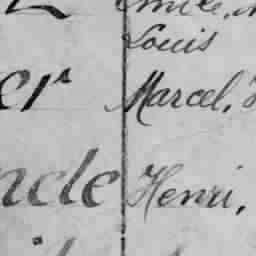 Louis
er Marcel,
ncle Henri,